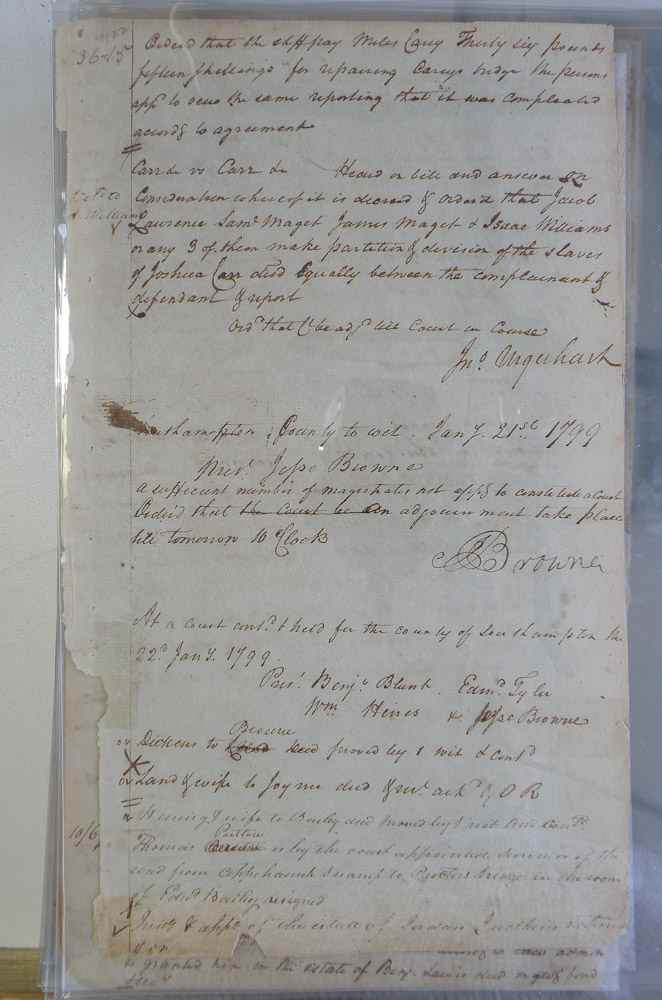 Orderd that the shff pay Miles Cary Thirty six pounds
fifteen shillings for repairing Careys bridge the persons
appd to veiw the same reporting that it was compleated
accordg to agreement
Carr &c vs Carr &c Heard on bill and answer on
Consideration whereof it is decreed & orderd that Jacob
Williams
Lawrence Saml Maget James Maget & Isaac Williams
or any 3 of them make partition & division of the slaves
of Joshua Carr decd Equally between the complainant &
defendant & report
Ordd that Ct be adjd till Court in Course
Jno Urquhart
Southampton County to wit. Jany. 21st 1799
Prest. Jesse Browne
a sufficient number of magistrates not appg to constitute a Court
Orderd that the court be an adjournment take place
till tomorrow 10 oClock
JBrowne
At a court contd & held for the county of Southampton the
22d Jany. 1799
Prest. Benja Blunt. Edwd. Tyler
Wm Hines & Jesse Browne
Browne
or Dickens to deed proved by 1 wit & contd
or Land & wife to Joyner deed & ackd & O R
or & wife to Bailey deed proved by 1 wit and contd.
10/6
Thomas is by the court appointed surveyor of the
road from Appehauk swamp to Proctors bridge in the room
of Edwd Bailey resigned
Invy & appt of the estate of Jordan Judkins returnd
& or
is granted him on the estate of Benj. Lewis decd